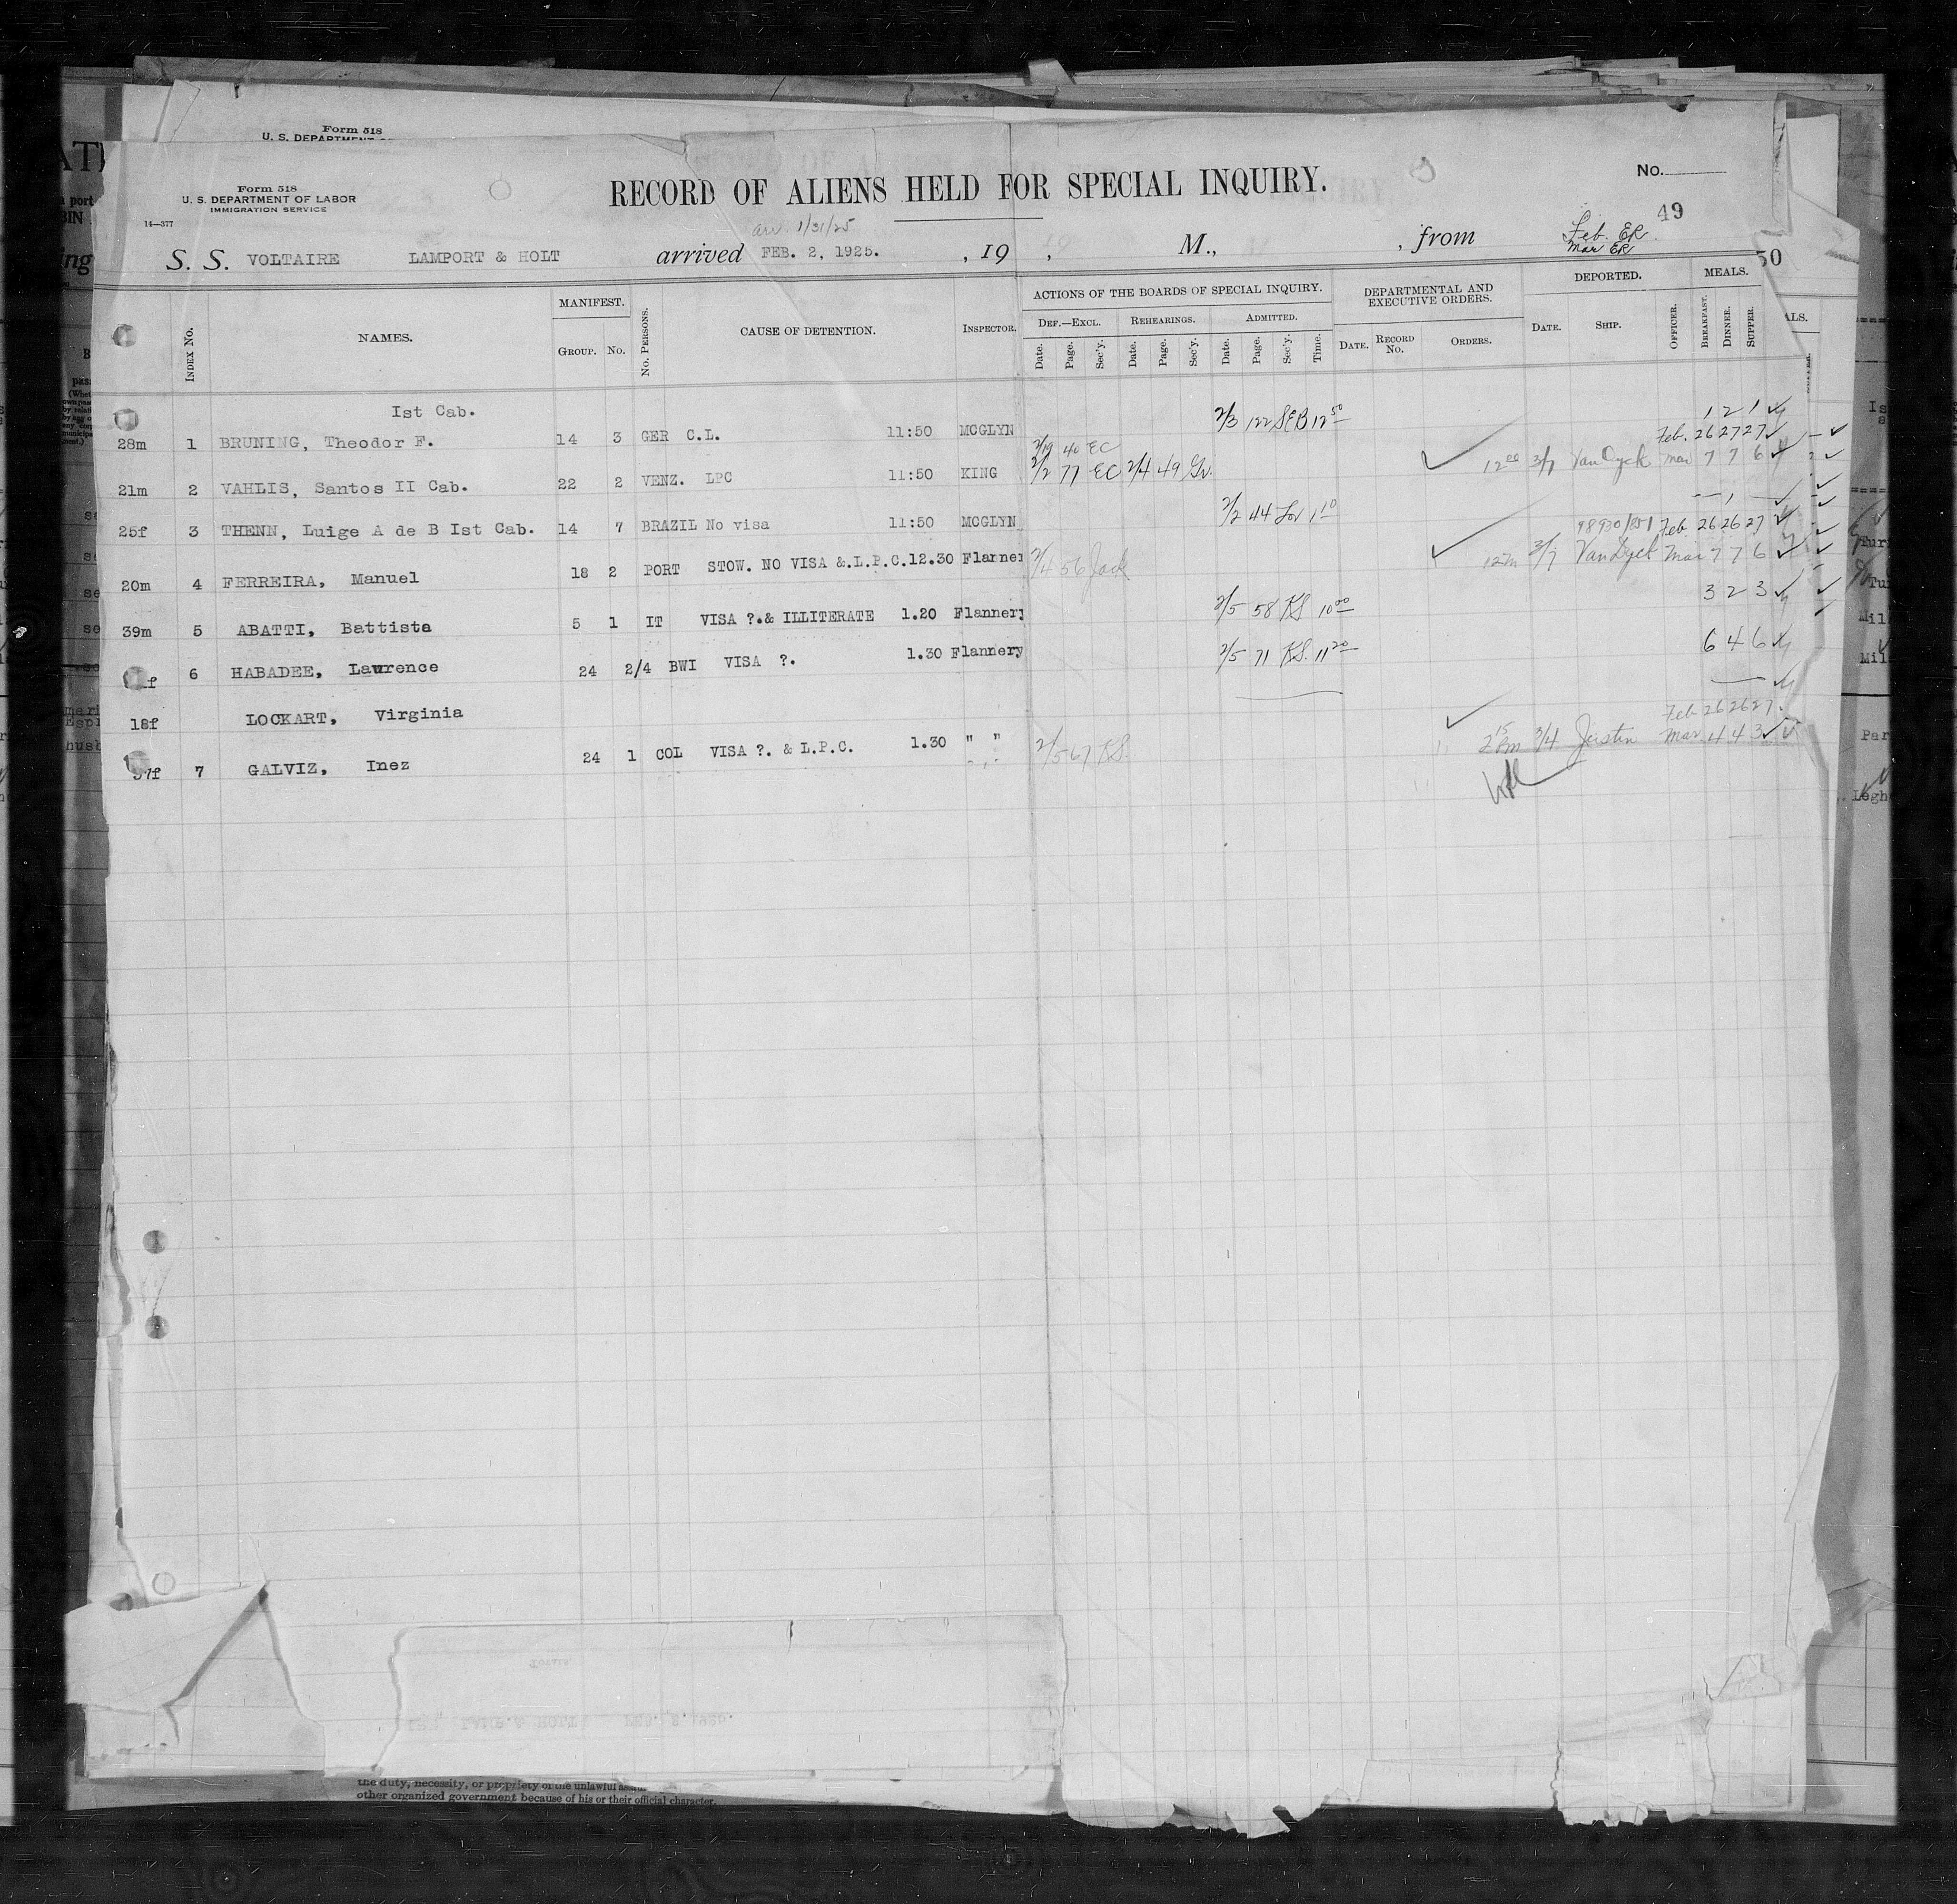 Form 518
U. S. DEPARTMENT
Form 518
U. S. DEPARTMENT OF LABOR
IMMIGRATION SERVICE
14—377
RECORD OF ALIENS HELD FOR SPECIAL INQUIRY.
No.
49
arr. 1/31/25
Feb. ER
Mar ER
S. S. VOLTAIRE LAMPORT & HOLT arrived FEB. 2, 1925. , 19 , M., , from
50
INDEX NO. NAMES. MANIFEST. GROUP. NO. NO. PERSONS. CAUSE OF DETENTION. INSPECTOR. ACTIONS OF THE BOARDS OF SPECIAL INQUIRY. DEF.—EXCL. Date. Page. Sec'y. REHEARINGS. Date. Page. Sec'y. ADMITTED. Date. Page. Sec'y. Time. DEPARTMENTAL AND EXECUTIVE ORDERS. DATE. RECORD NO. ORDERS. DEPORTED. DATE. SHIP. OFFICER. MEALS. BREAKFAST. DINNER. SUPPER.
Ist Cab.
28m 1 BRUNING, Theodor F. 14 3 GER C.L. 11:50 MCGLYN 2/3 122 SEB 12 50 1 2 1
2/19 40 EC Feb. 26 27 27
21m 2 VAHLIS, Santos II Cab. 22 2 VENZ. LPC 11:50 KING 2/2 77 EC 2/4 49 Gr. 12 00 3/7 VanDyck Mar 7 7 6
25f 3 THENN, Luige A de B Ist Cab. 14 7 BRAZIL No visa 11:50 MCGLYN 2/2 44 1 10 — 1 —
98930/851 Feb 26 26 27
20m 4 FERREIRA, Manuel 18 2 PORT STOW. NO VISA &.L.P.C. 12.30 Flanner 2/4 56 Jack 12m 3/7 VanDyck Mar 7 7 6
39m 5 ABATTI, Battista 5 1 IT VISA ?.& ILLITERATE 1.20 Flannery 2/5 58 KS 10 00 3 2 3
f 6 HABADEE, Lawrence 24 2/4 BWI VISA ?. 1.30 Flannery 2/5 71 KS. 11 20 6 4 6
18f LOCKART, Virginia
Feb 26 26 27
f 7 GALVIZ, Inez 24 1 COL VISA ?. & L.P.C. 1.30 " " 2/5 67 KS. 2 15 Pm 3/4 Justin Mar. 4 4 3
the duty, necessity, or propriety of the unlawful
other organized government because of his or their official character.